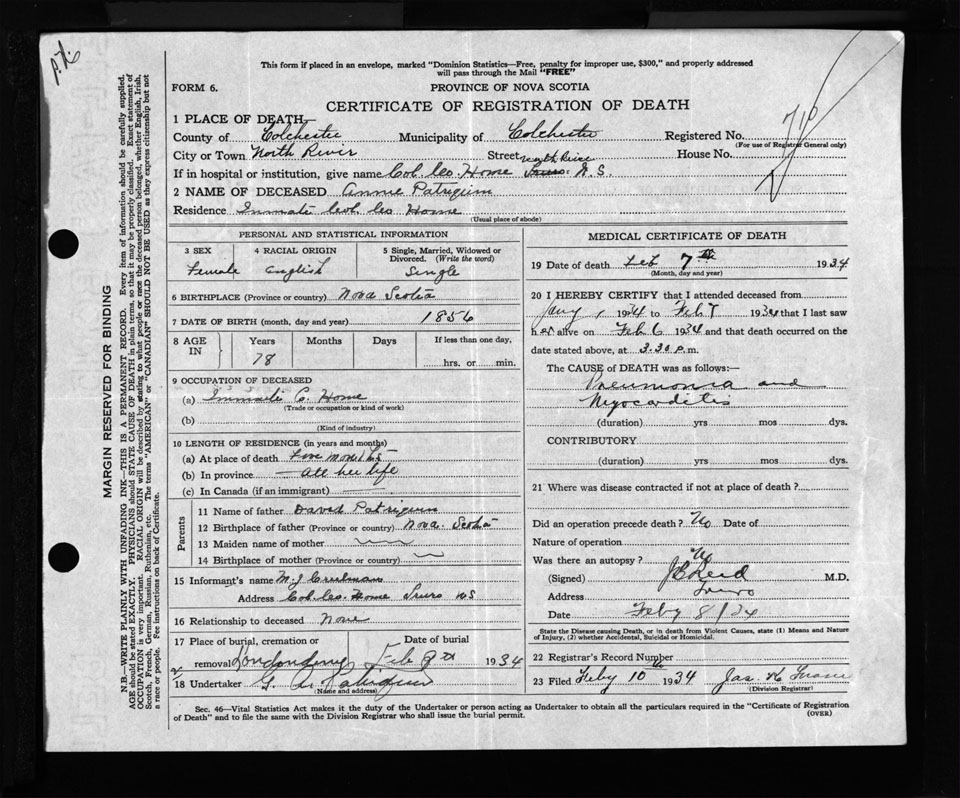 This form if placed in an envelope, marked "Dominion Statistics—Free, penalty for improper use, $300," and properly addressed
will pass through the Mail "FREE"
FORM 6.
PROVINCE OF NOVA SCOTIA
CERTIFICATE OF REGISTRATION OF DEATH
1 PLACE OF DEATH
County of Colchester Municipality of Colchester Registered No.
(For use of Registrar General only)
City or Town North River Street North River House No.
If in hospital or institution, give name Col. Co. Home N.S.
2 NAME OF DECEASED Annie Patriquin
Residence Inmate Col Co Home
(Usual place of abode)
PERSONAL AND STATISTICAL INFORMATION
3 SEX 4 RACIAL ORIGIN 5 Single, Married, Widowed or
Divorced. (Write the word)
Female English Single
6 BIRTHPLACE (Province or country) Nova Scotia
7 DATE OF BIRTH (month, day and year) 1856
8 AGE IN Years Months Days If less than one day,
78 hrs. or min.
9 OCCUPATION OF DECEASED
(a) Inmate C. Home
(Trade or occupation or kind of work)
(b)
(Kind of industry)
10 LENGTH OF RESIDENCE (in years and months)
(a) At place of death months
(b) In province all her life
(c) In Canada (if an immigrant)
Parents
11 Name of father David Patriquin
12 Birthplace of father (Province or country) Nova Scotia
13 Maiden name of mother
14 Birthplace of mother (Province or country)
15 Informant's name M. J. Creelman
Address Col. Co. Home Truro N S
16 Relationship to deceased None
17 Place of burial, cremation or Date of burial
removal Feb 9th 1934
18 Undertaker Patriquin
(Name and address)
MEDICAL CERTIFICATE OF DEATH
19 Date of death Feb 7th 1934
(Month, day and year)
20 I HEREBY CERTIFY that I attended deceased from
1934 to Feb 7 1934 that I last saw
her alive on Feb 6 1934 and that death occurred on the
date stated above, at 3.30 p.m.
The CAUSE OF DEATH was as follows:—
Pneumonia and
Myocarditis
(duration) yrs mos dys.
CONTRIBUTORY
(duration) yrs mos dys.
21 Where was disease contracted if not at place of death?
Did an operation precede death? No Date of
Nature of operation
Was there an autopsy? No
(Signed) Reid M.D.
Address Truro
Date Feby 8/34
State the Disease causing Death, or in death from Violent Causes, state (1) Means and Nature
of Injury, (2) whether Accidental, Suicidal or Homicidal.
22 Registrar's Record Number
23 Filed Feby 10th 1934 Jas. H
(Division Registrar)
Sec. 46—Vital Statistics Act makes it the duty of the Undertaker or person acting as Undertaker to obtain all the particulars required in the "Certificate of Registration
of Death" and to file the same with the Division Registrar who shall issue the burial permit.
(OVER)
MARGIN RESERVED FOR BINDING
N.B.—WRITE PLAINLY WITH UNFADING INK—THIS IS A PERMANENT RECORD. Every item of information should be carefully supplied.
AGE should be stated EXACTLY. PHYSICIANS should STATE CAUSE OF DEATH in plain terms, so that it may be properly classified. Exact statement of
OCCUPATION is very important. RACIAL ORIGIN will be described by stating to what people or race the deceased person belonged, whether English, Irish,
Scotch, French, German, Russian, Ruthenian, etc. The terms "AMERICAN" or "CANADIAN" SHOULD NOT BE USED as they express citizenship but not
a race or people. Fee instructions on back of Certificate.